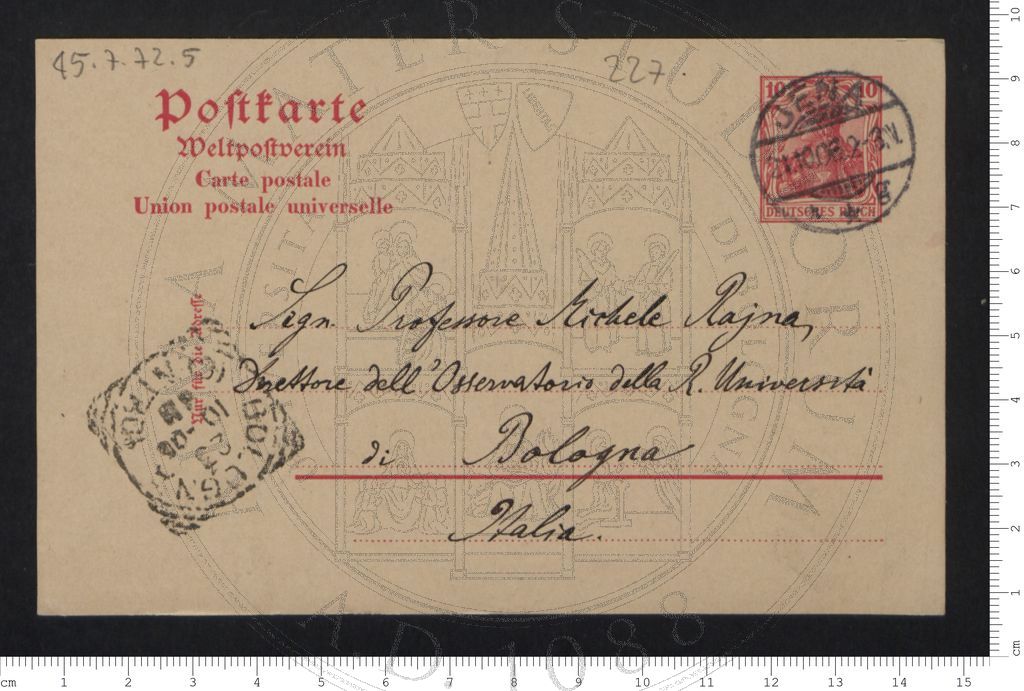 45.7.72.5
227.
Poſtkarte
Weltpoſtverein
Carte postale
Union postale universelle
10 10
DEUTSCHES REICH
JENA
2-3N.
Nur für die Adreſſe
Sign. Professore Michele Rajna,
Direttore dell'Osservatorio della R. Università
di Bologna
Italia.
BOLOGNA
ALMA MATER STUDIORUM
A.D. 1088
cm 1 2 3 4 5 6 7 8 9 10 11 12 13 14 15
10
9
8
7
6
5
4
3
2
1
cm